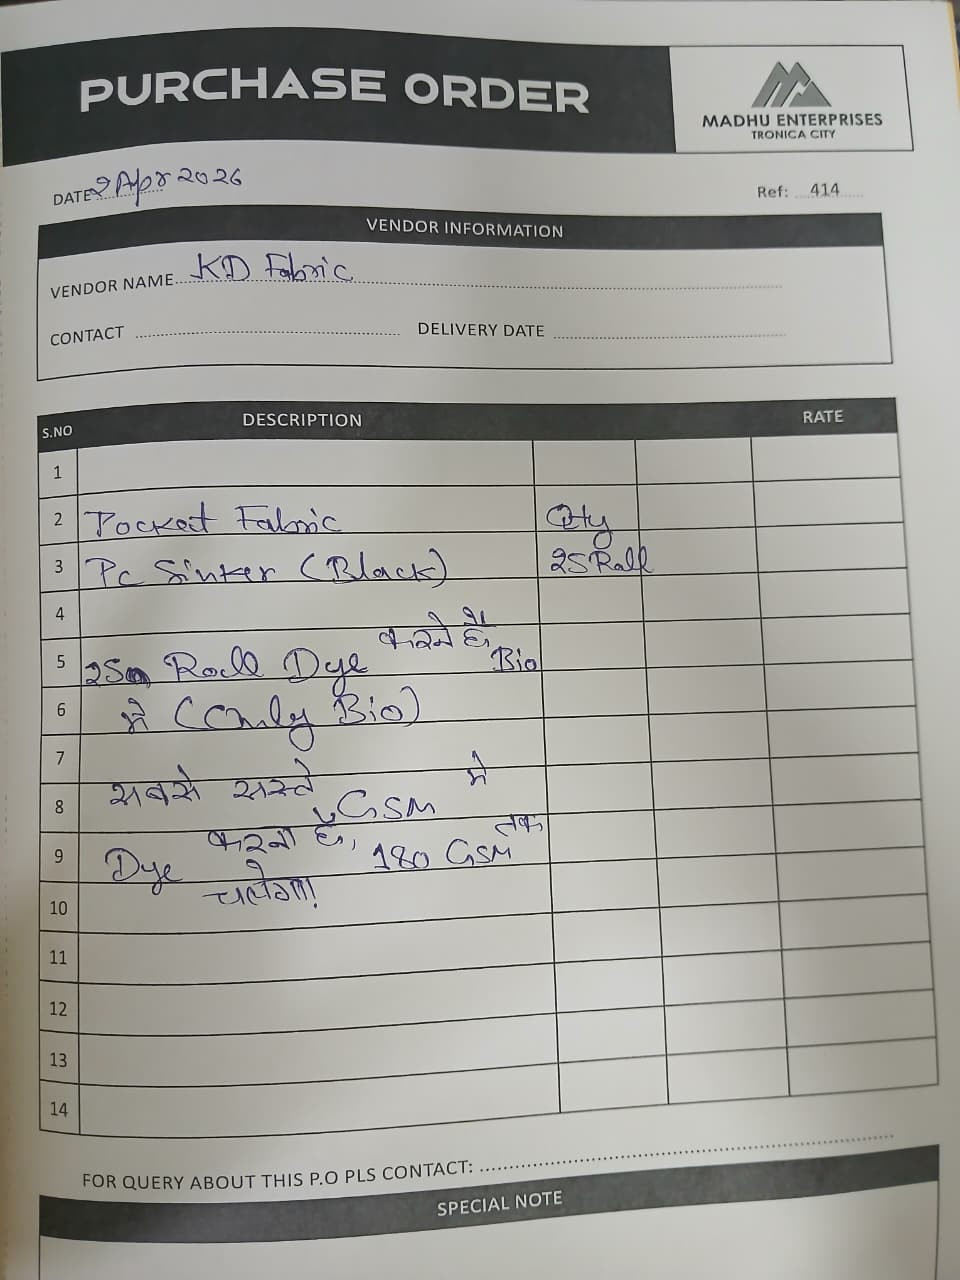 PURCHASE ORDER
MADHU ENTERPRISES
TRONICA CITY
DATE 2 Apr 2026
Ref: 414
VENDOR INFORMATION
VENDOR NAME KD Fabric
CONTACT DELIVERY DATE
S.NO DESCRIPTION RATE
1
2 Pocket Fabric Qty
3 Pc Sinker (Black) 25 Roll
4
5 25 Roll Dye करने है, Bio
6 में (Only Bio)
7
8 सबसे सस्ते GSM में
9 Dye करना है, 180 GSM तक
10 चलेगा!
11
12
13
14
FOR QUERY ABOUT THIS P.O PLS CONTACT:
SPECIAL NOTE